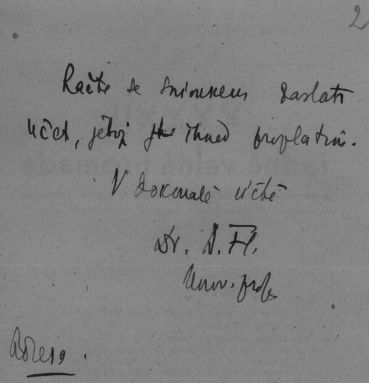 2
Račte se snímkem zaslati
účet, jehož ihned proplatím.
V dokonalé úctě
Dr. A. Fl.
Univ. prof.
Adresa.